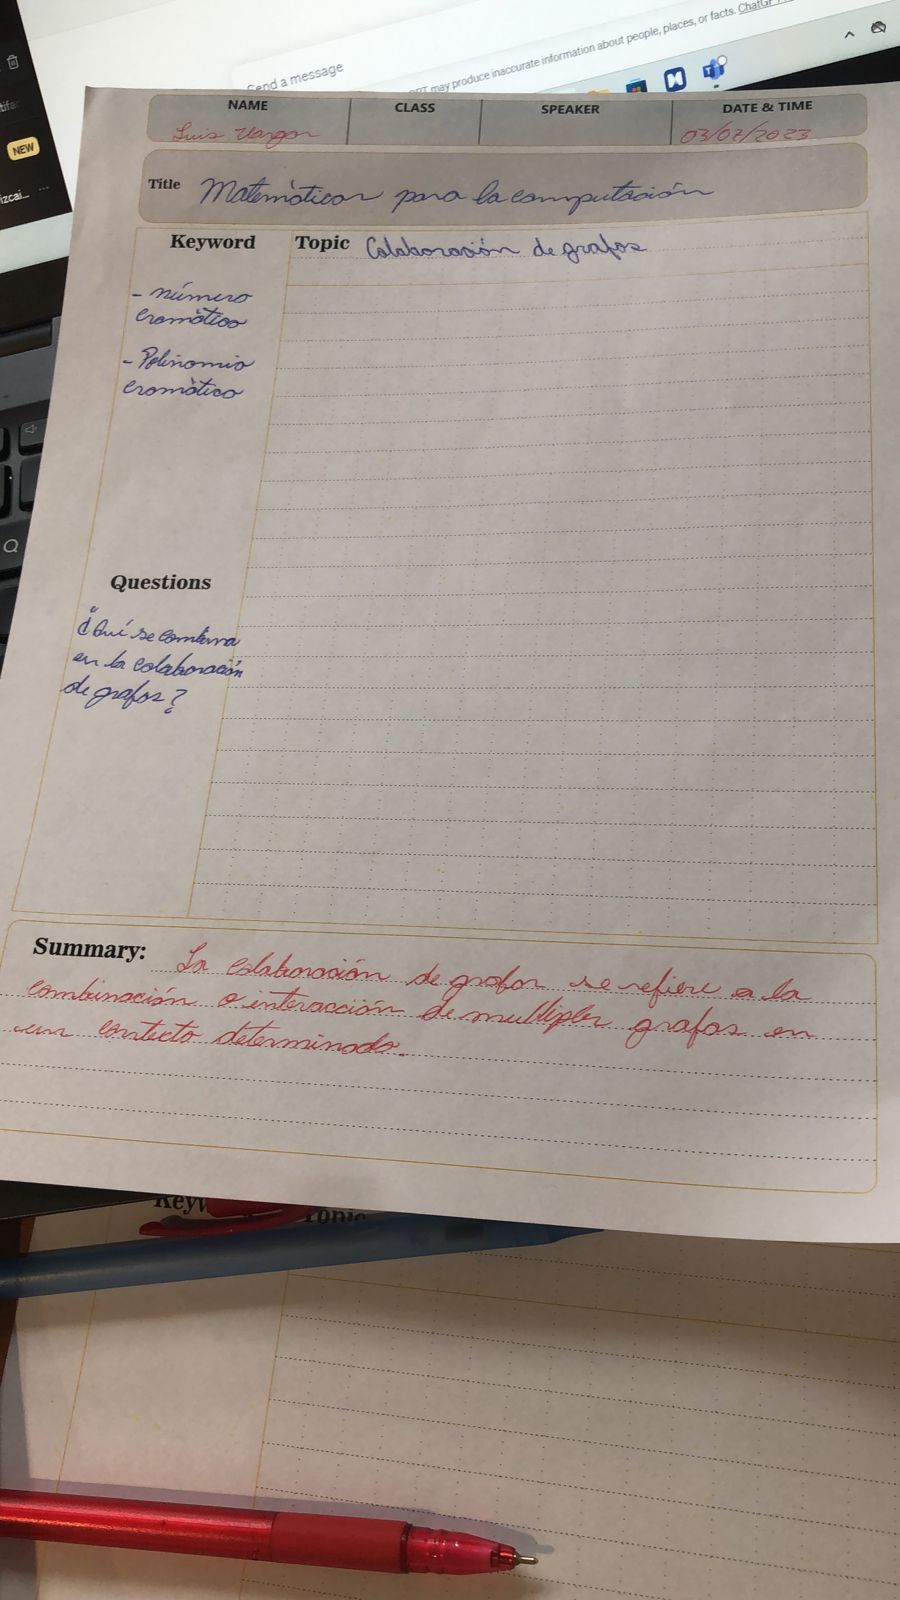 Send a message
GPT may produce inaccurate information about people, places, or facts.
NEW
izcai_ ...
NAME CLASS SPEAKER DATE & TIME
Luis Vargas 03/07/2023
Title Matemáticas para la computación
Keyword Topic Colaboración de grafos
- número
cromático
- Polinomio
cromático
Questions
¿Qué se combina
en la colaboración
de grafos?
Summary: La colaboración de grafos se refiere a la
combinación o interacción de multiples grafos en
un contexto determinado.
Keyw Topic